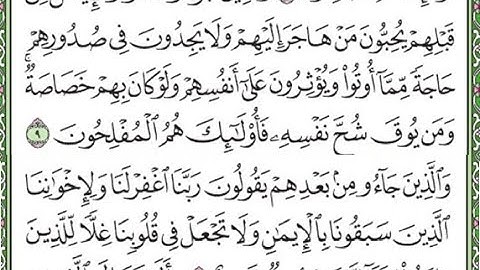 قَبْلِهِمْ يُحِبُّونَ مَنْ هَاجَرَ إِلَيْهِمْ وَلَا يَجِدُونَ فِى صُدُورِهِمْ
حَاجَةً مِّمَّآ أُوتُوا۟ وَيُؤْثِرُونَ عَلَىٰٓ أَنفُسِهِمْ وَلَوْ كَانَ بِهِمْ خَصَاصَةٌ ۚ
وَمَن يُوقَ شُحَّ نَفْسِهِۦ فَأُو۟لَـٰٓئِكَ هُمُ ٱلْمُفْلِحُونَ ٩
وَٱلَّذِينَ جَآءُو مِنۢ بَعْدِهِمْ يَقُولُونَ رَبَّنَا ٱغْفِرْ لَنَا وَلِإِخْوَٰنِنَا
ٱلَّذِينَ سَبَقُونَا بِٱلْإِيمَـٰنِ وَلَا تَجْعَلْ فِى قُلُوبِنَا غِلًّا لِّلَّذِينَ